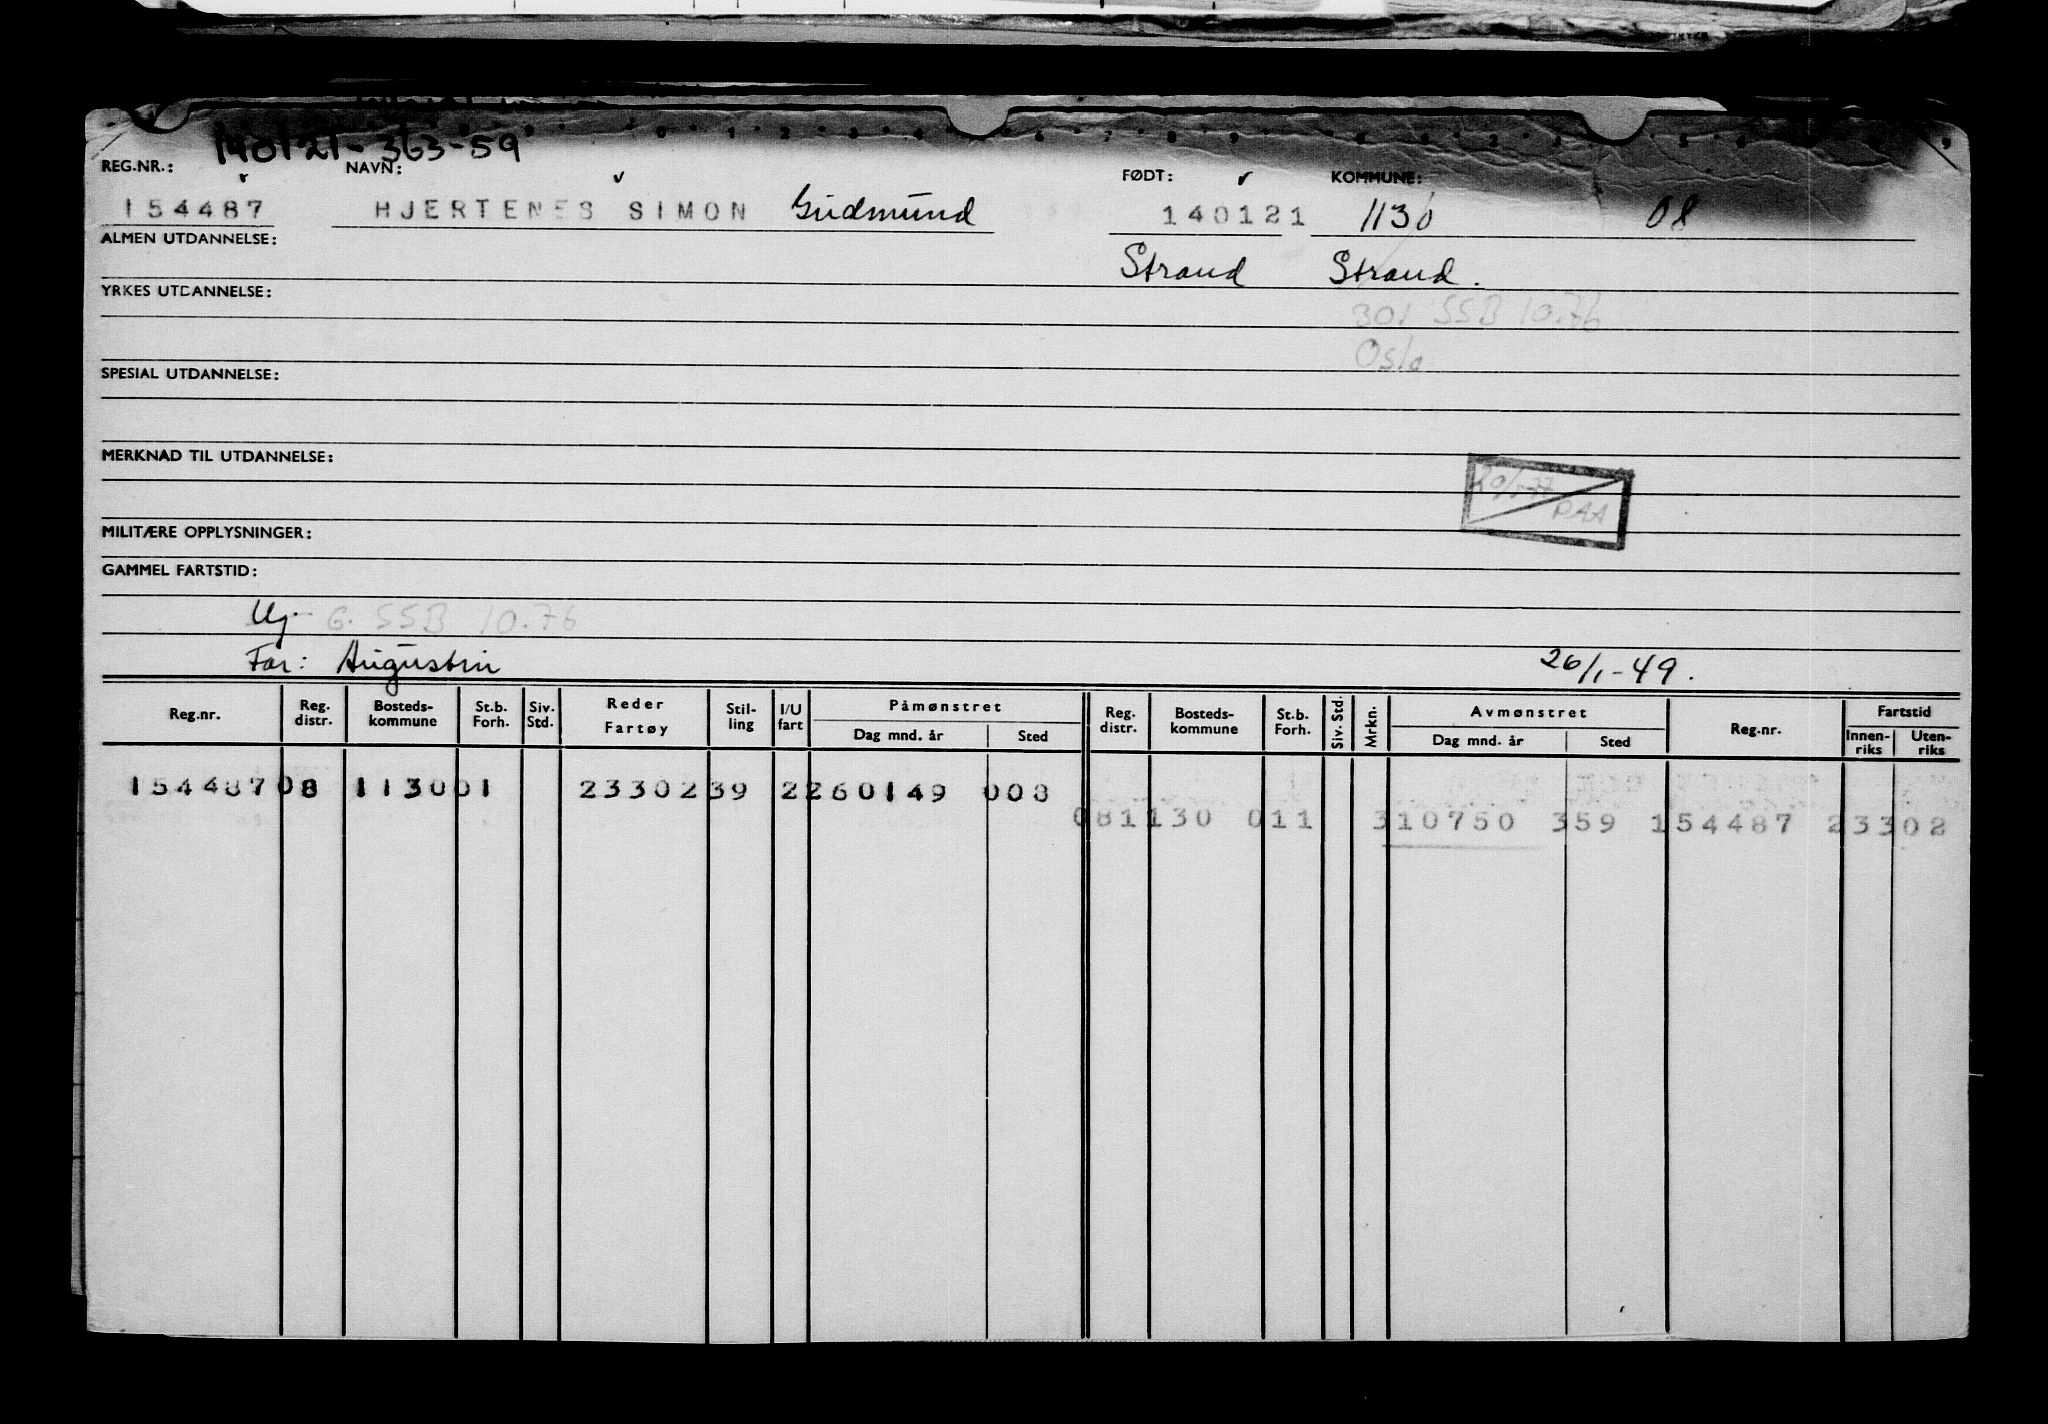 140121-363-59
REG.NR.: NAVN: FØDT: KOMMUNE:
154487 HJERTENES SIMON Gudmund 140121 1130 08
ALMEN UTDANNELSE: Strand Strand.
YRKES UTDANNELSE: 301 SSB 10.76
Oslo
SPESIAL UTDANNELSE:
MERKNAD TIL UTDANNELSE:
MILITÆRE OPPLYSNINGER:
GAMMEL FARTSTID:
Ug. G. SSB 10.76
Far: Augustin 26/1-49.
Reg.nr. Reg. distr. Bosteds-kommune St.b. Forh. Siv. Std. Reder Fartøy Stil-ling I/U fart Påmønstret Dag mnd. år Sted Reg. distr. Bosteds-kommune St.b. Forh. Siv. Std. Mrkn. Avmønstret Dag mnd. år Sted Reg.nr. Fartstid Innen-riks Uten-riks
154487 08 1130 01 23302 39 2 260149 008
08 1130 011 310750 359 154487 23302